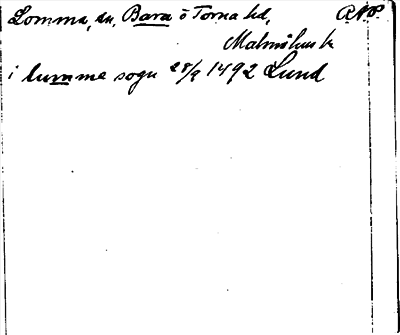 Lomma, sn, Bara o Torna hd, A.N.P.
Malmöhus l.
i lumma sogn 28/9 1492 Lund